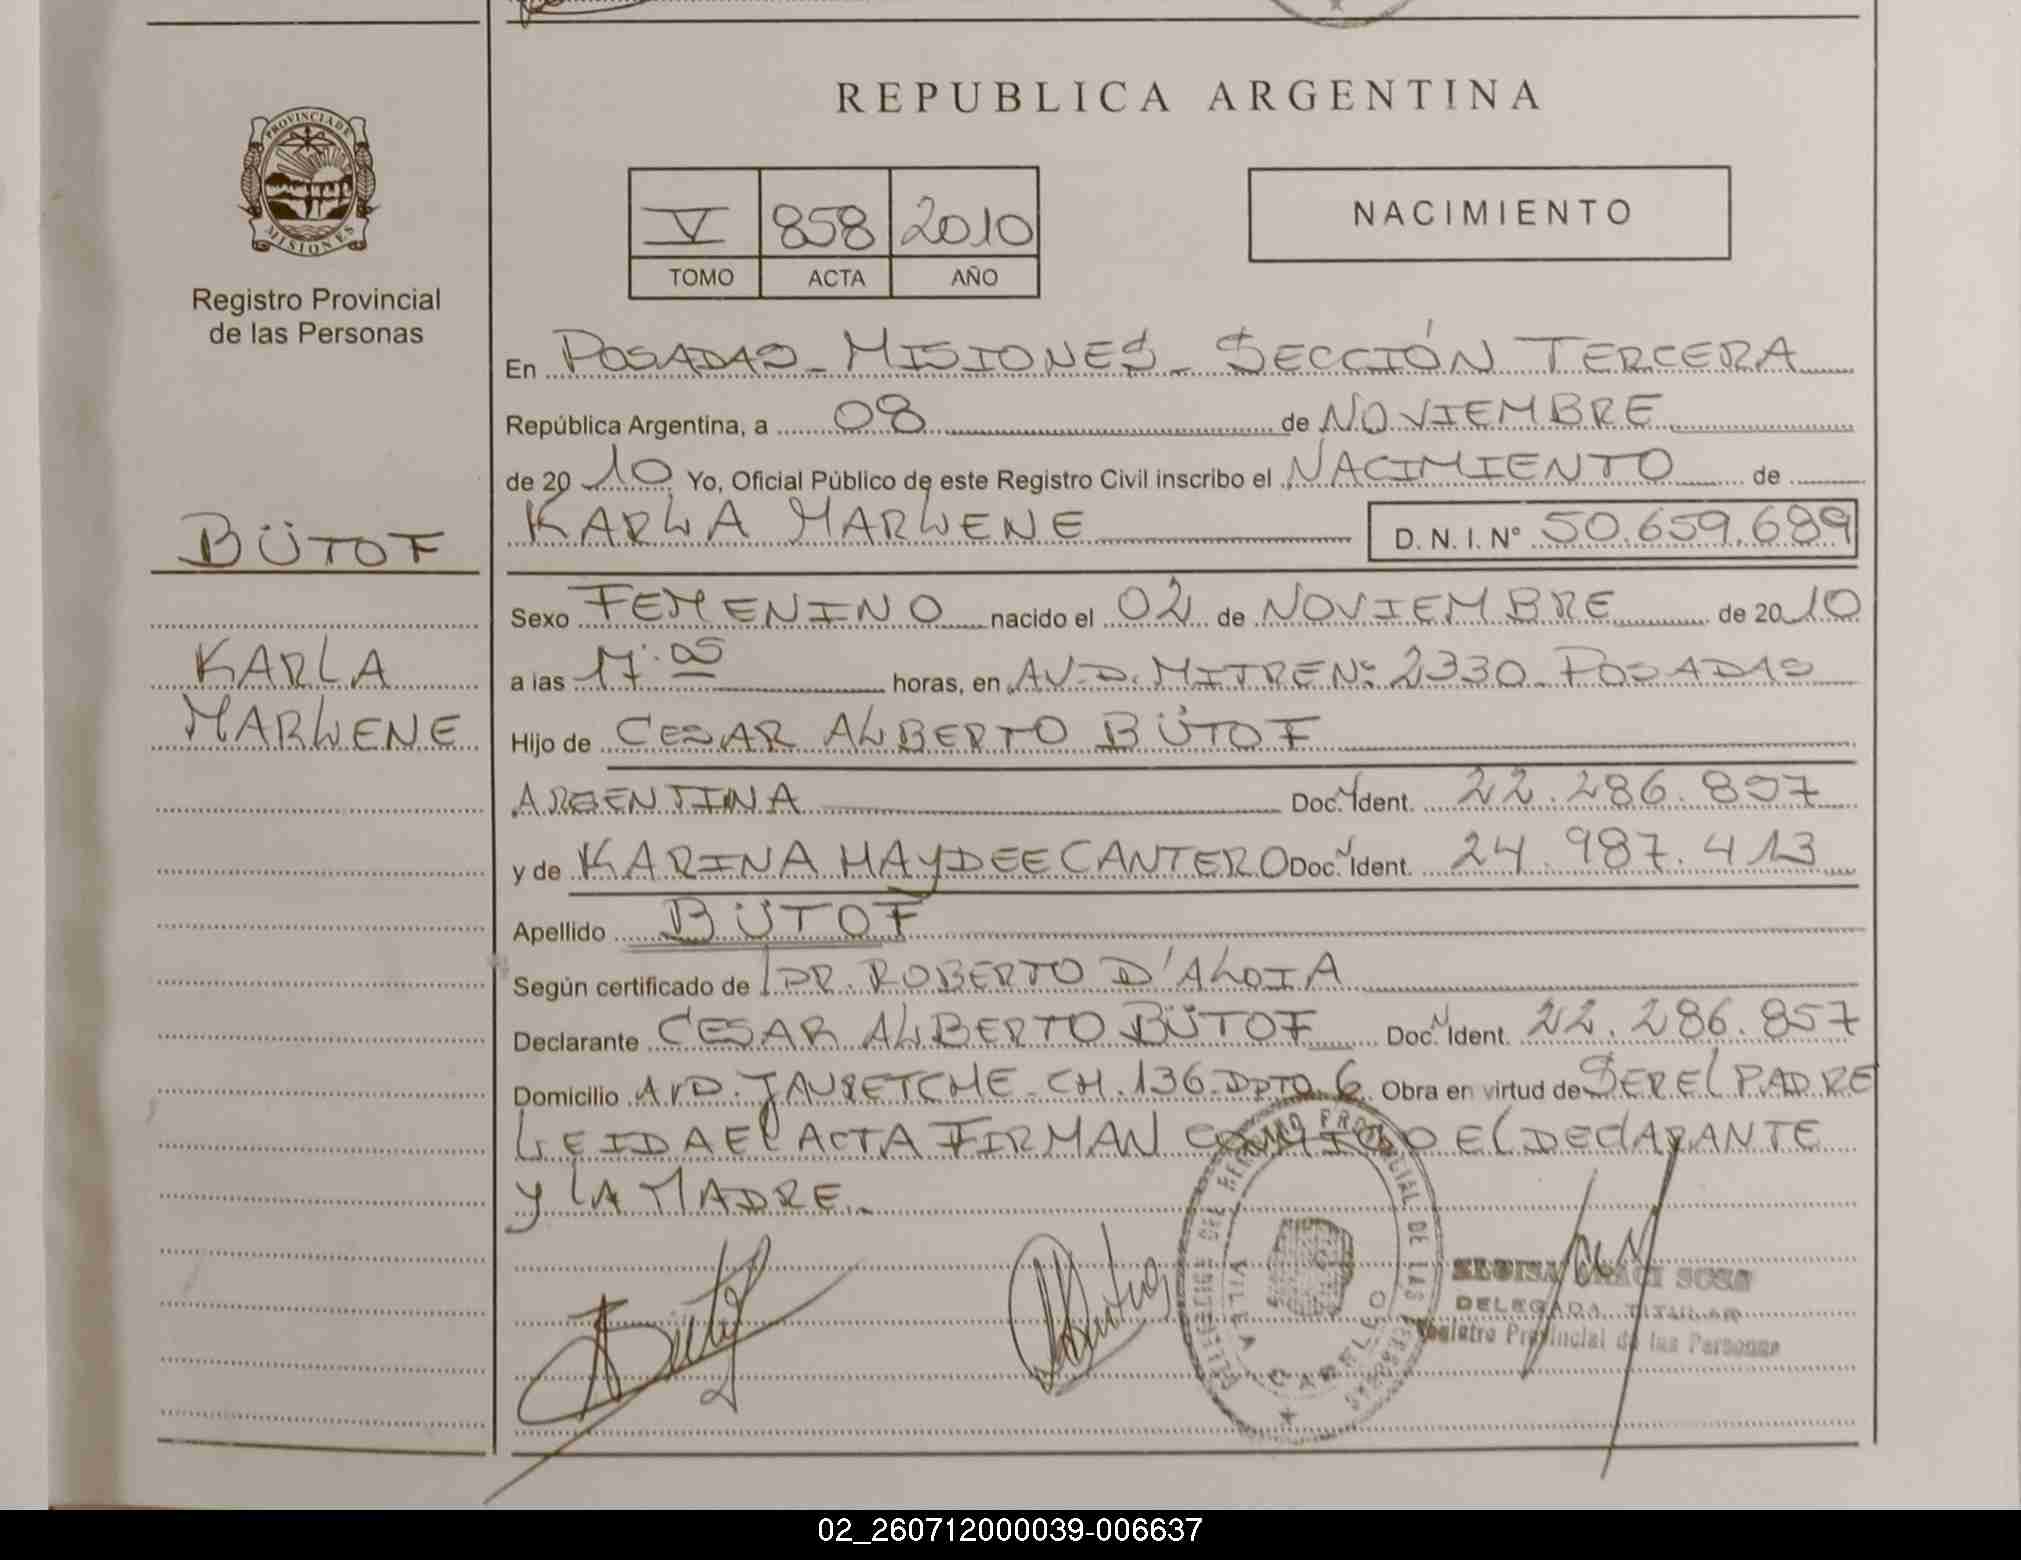 REPUBLICA ARGENTINA
PROVINCIA DE
MISIONES
Registro Provincial
de las Personas
V 858 2010
TOMO ACTA AÑO
NACIMIENTO
En POSADAS - MISIONES - SECCIÓN TERCERA
República Argentina, a 08 de NOVIEMBRE
de 2010 Yo, Oficial Público de este Registro Civil inscribo el NACIMIENTO de
KARLA MARLENE D. N. I. N° 50.659.689
BÜTOF
KARLA
MARLENE
Sexo FEMENINO nacido el 02 de NOVIEMBRE de 2010
a las 17:05 horas, en AVD. MITRE Nº 2330 - POSADAS
Hijo de CESAR ALBERTO BÜTOF
ARGENTINA Doc. Ident. 22.286.857
y de KARINA HAYDEE CANTERO Doc. Ident. 24.987.413
Apellido BÜTOF
Según certificado de DR. ROBERTO D'ALOIA
Declarante CESAR ALBERTO BÜTOF Doc. Ident. 22.286.857
Domicilio AVD. JAURETCHE - CH. 136 - DPTO. 6 Obra en virtud de SER EL PADRE
LEIDA EL ACTA FIRMAN CONMIGO EL DECLARANTE
Y LA MADRE.
DELEGACION DEL REGISTRO PROVINCIAL DE LAS PERSONAS
VILLA CABELLO
SOSA
DELEGADA TITULAR
Registro Provincial de las Personas
02_260712000039-006637